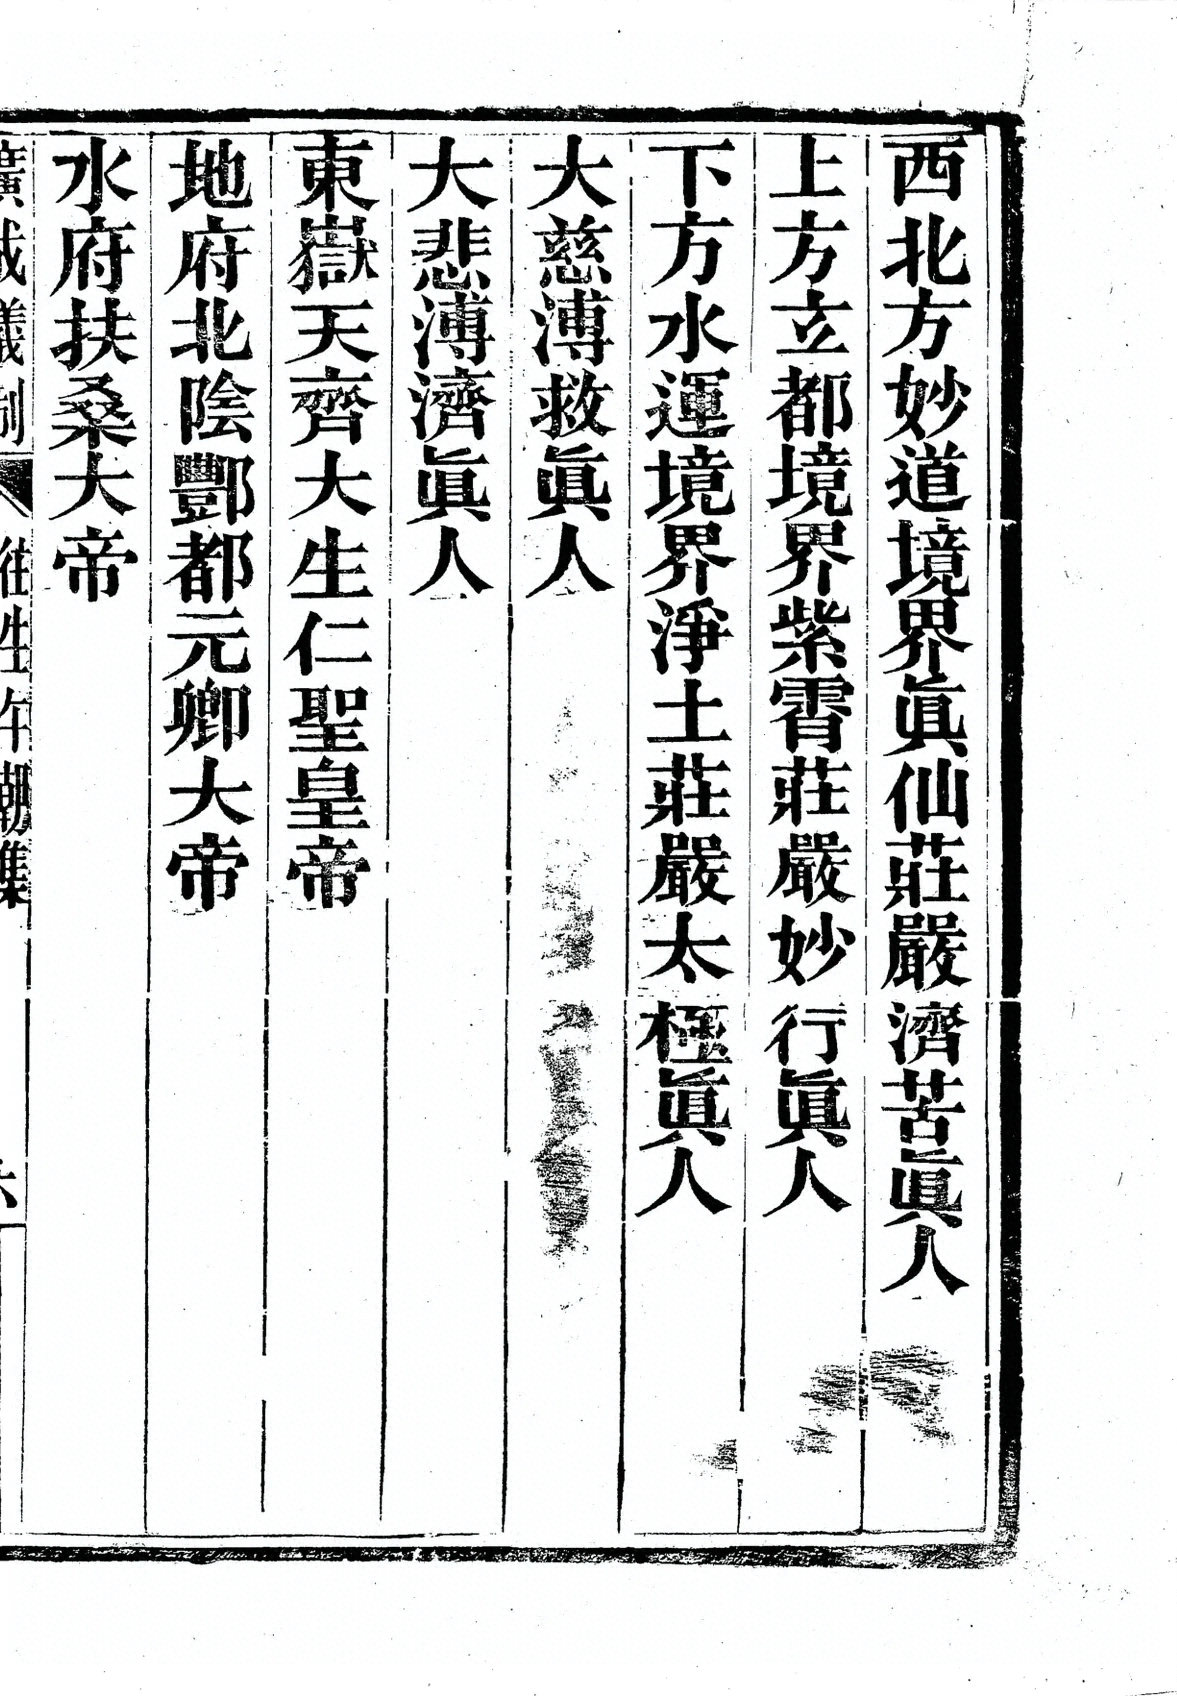 西北方妙道境界眞仙莊嚴濟苦眞人
上方立都境界紫霄莊嚴妙行眞人
下方水運境界淨土莊嚴太極眞人
大慈溥救眞人
大悲溥濟眞人
東嶽天齊大生仁聖皇帝
地府北陰酆都元卿大帝
水府扶桑大帝
廣成儀制 往生午朝集 六